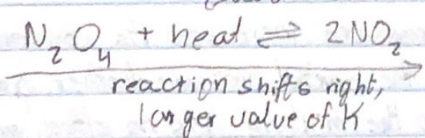 N₂O₄ + heat ⇌ 2NO₂
reaction shifts right,
larger value of K